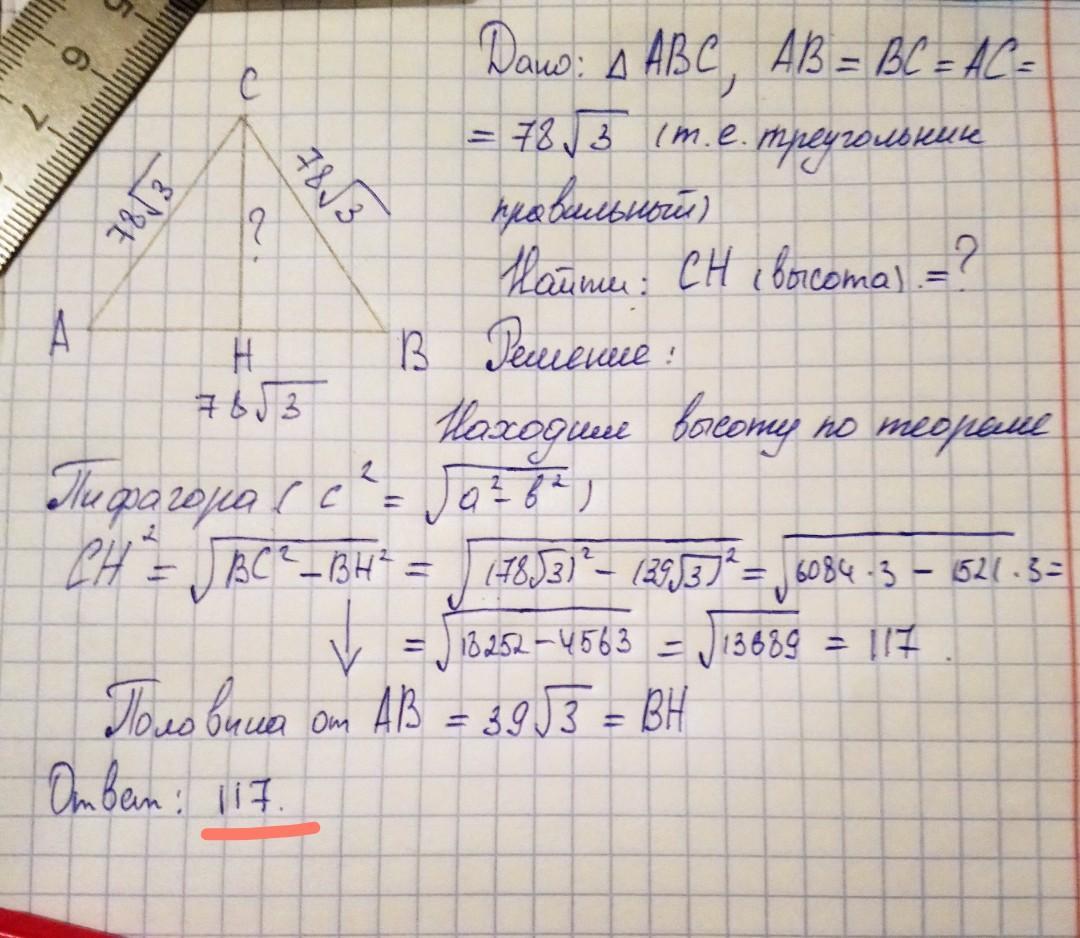 5
6
7
C
78√3
78√3
?
A
H
B
78√3
Дано: Δ ABC, AB = BC = AC =
= 78√3 (т.е. треугольник
правильный)
Найти: CH (высота) = ?
Решение:
Находим высоту по теореме
Пифагора ( c² = √(a² - b²) )
CH² = √(BC² - BH²) = √((78√3)² - (39√3)²) = √(6084 · 3 - 1521 · 3) =
= √(18252 - 4563) = √13689 = 117.
↓
Половина от AB = 39√3 = BH
Ответ: 117.